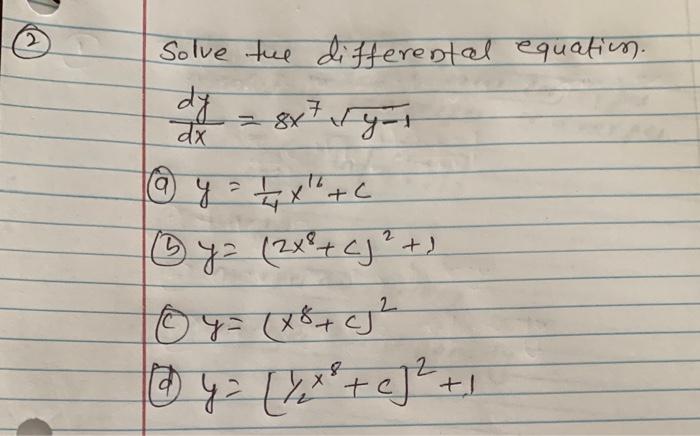 ② Solve the differental equation.
dy/dx = 8x⁷ √(y-1)
ⓐ y = 1/4 x¹⁶ + c
ⓑ y = (2x⁸ + c)² + 1
ⓒ y = (x⁸ + c)²
ⓓ y = [1/2 x⁸ + c]² + 1